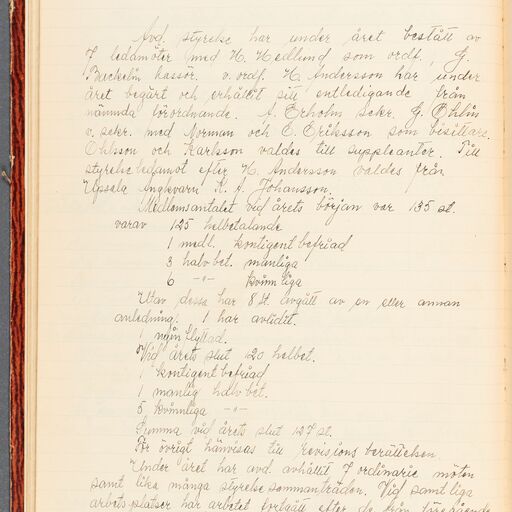 Avd. styrelse har under året bestått av
7 ledamöter med H. Hedlund som ordf., G.
Backelin kassör. v. ordf. H. Andersson har under
året begärt och erhållit sitt entledigande från
nämnda förordnande. A. Erholm sekr. G. Ohlin
v. sekr. med Norman och E. Eriksson som bisittare.
Ohlsson och Karlsson valdes till suppleanter. Till
styrelseledamot efter H. Andersson valdes från
Upsala Ångkvarn K. A. Johansson.
Medlemsantalet vid årets början var 135 st.
varav 125 helbetalande
1 medl. kontigentbefriad
3 halvbet. manliga
6 -"- kvinnliga
Utav dessa har 8 st. avgått av en eller annan
anledning. 1 har avlidit.
ingen flyttad.
Vid årets slut 120 helbet.
1 kontigentbefriad
1 manlig halvbet.
5 kvinnliga -"-
Summa vid årets slut 127 st.
För övrigt hänvisas till revisionsberättelsen.
Under året har avd. avhållit 7 ordinarie möten
samt lika många styrelsesammanträden. Vid samtliga
arbetsplatser har arbetet fortgått efter de från föregående